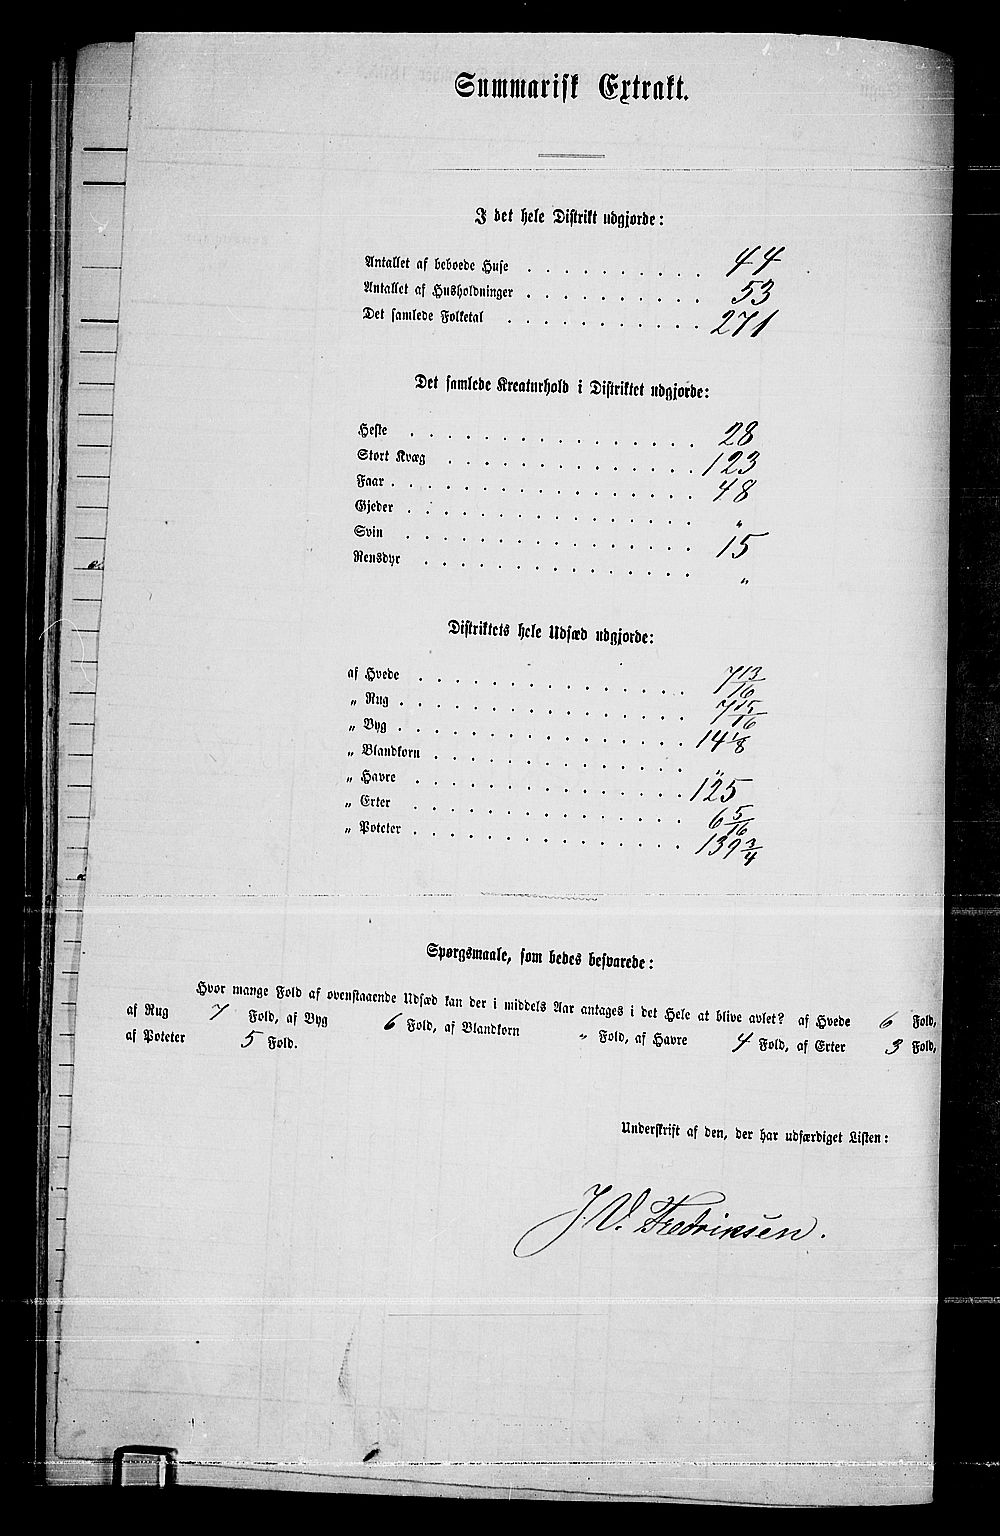 Summarisk Extrakt.
I det hele Distrikt udgjorde:
Antallet af beboede Huse . . . . . . . . . . 44
Antallet af Husholdninger . . . . . . . . . . 53
Det samlede Folketal . . . . . . . . . . . 271
Det samlede Kreaturhold i Distriktet udgjorde:
Heste . . . . . . . . . . . . . . . 28
Stort Kvæg . . . . . . . . . . . . . 123
Faar . . . . . . . . . . . . . . . . 48
Gjeder . . . . . . . . . . . . . . . "
Svin . . . . . . . . . . . . . . . 15
Rensdyr . . . . . . . . . . . . . . "
Distriktets hele Udsæd udgjorde:
af Hvede . . . . . . . . . . . . . . 7 13/16
„ Rug . . . . . . . . . . . . . . . 7 15/16
„ Byg . . . . . . . . . . . . . . . 14 1/8
„ Blandkorn . . . . . . . . . . . . . "
„ Havre . . . . . . . . . . . . . . 125
„ Erter . . . . . . . . . . . . . . 6 5/16
„ Poteter . . . . . . . . . . . . . . 139 3/4
Spørgsmaale, som bedes besvarede:
Hvor mange Fold af ovenstaaende Udsæd kan der i middels Aar antages i det Hele at blive avlet? af Hvede 6 Fold,
af Rug 7 Fold, af Byg 6 Fold, af Blandkorn " Fold, af Havre 4 Fold, af Erter 3 Fold,
af Poteter 5 Fold.
Underskrift af den, der har udfærdiget Listen:
J. V. Fredriksen.